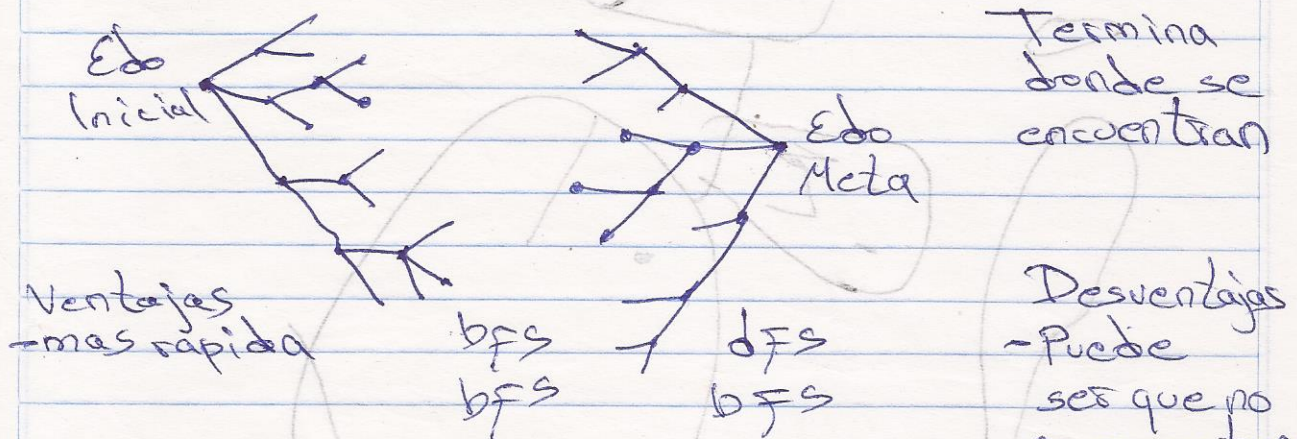 Edo
Inicial
Termina
donde se
encuentran
Edo
Meta
Ventajas
-mas rápida
bfs dfs
bfs bfs
Desventajas
-Puede
ser que no